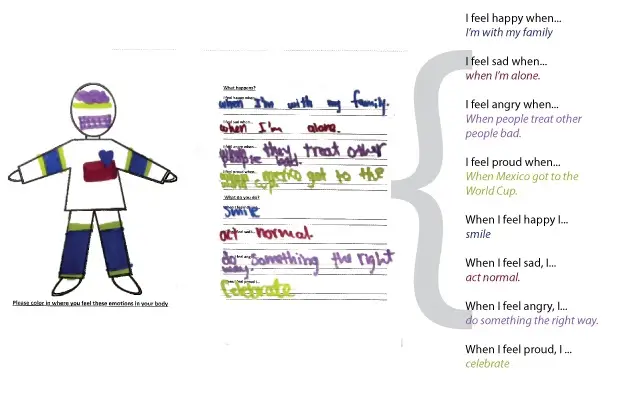 Please color in where you feel these emotions in your body
What happens?
I feel happy when...
when I'm with my family.
I feel sad when...
when I'm alone.
I feel angry when...
when they treat other
people bad.
I feel proud when...
when mexico got to the
world cup.
What do you do?
smile
act normal.
do something the right
way.
Celebrate
I feel happy when...
I'm with my family
I feel sad when...
when I'm alone.
I feel angry when...
When people treat other
people bad.
I feel proud when...
When Mexico got to the
World Cup.
When I feel happy I...
smile
When I feel sad, I...
act normal.
When I feel angry, I...
do something the right way.
When I feel proud, I ...
celebrate